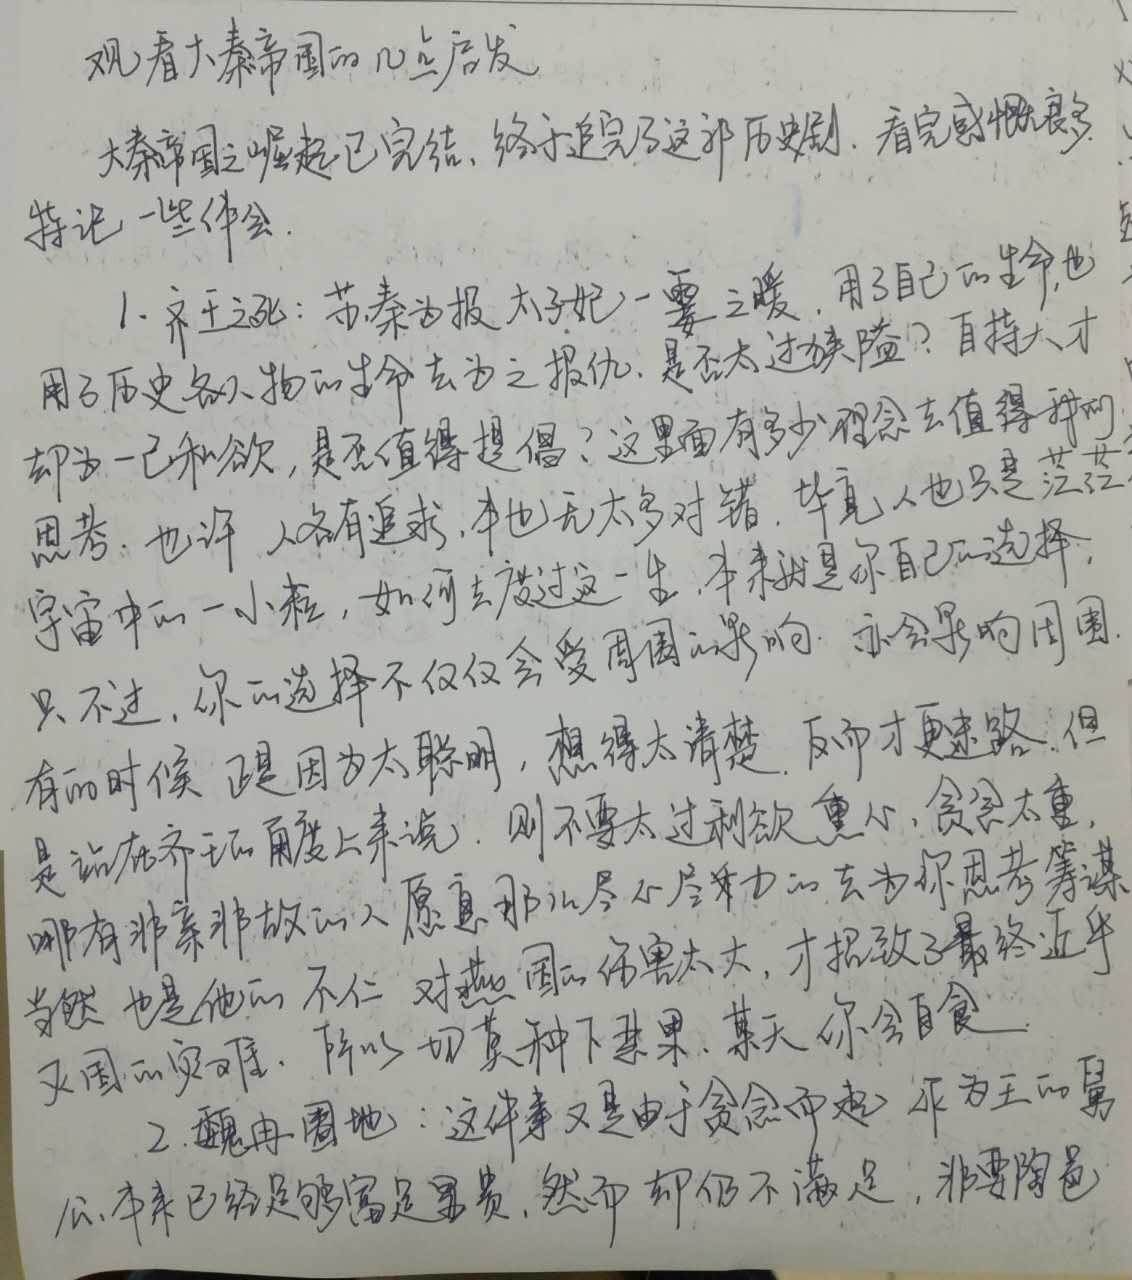 观看大秦帝国的几点启发
大秦帝国之崛起已完结、终于追完了这部历史剧. 看完感慨良多
特记一些体会.
1. 齐王之死: 苏秦为报太子妃一 之暖, 用了自己的生命,也
用了历史各人物的生命去为之报仇、是否太过狭隘? 自持大才
却为一己私欲, 是否值得提倡? 这里面有多少理念去值得我们
思考. 也许 人各有追求, 本也无太多对错. 毕竟人也只是茫茫
宇宙中的一小粒, 如何去度过这一生, 本来就是你自己的选择,
只不过, 你的选择不仅仅会受周围的影响. 亦会影响周围.
有的时候 正是因为太聪明, 想得太清楚, 反而才更迷路. 但
是站在齐王的角度上来说, 则不要太过利欲熏心, 贪念太重,
哪有非亲非故的人愿意那么尽心尽力的去为你思考筹谋
当然 也是他的不仁 对燕国的伤害太大, 才招致了最终近乎
灭国的灾难. 所以切莫种下恶果、某天你会自食.
2. 魏冉圈地: 这件事又是由于贪念而起 作为王的舅
公、本来已经足够富足里贵, 然而却仍不满足, 非要陶邑